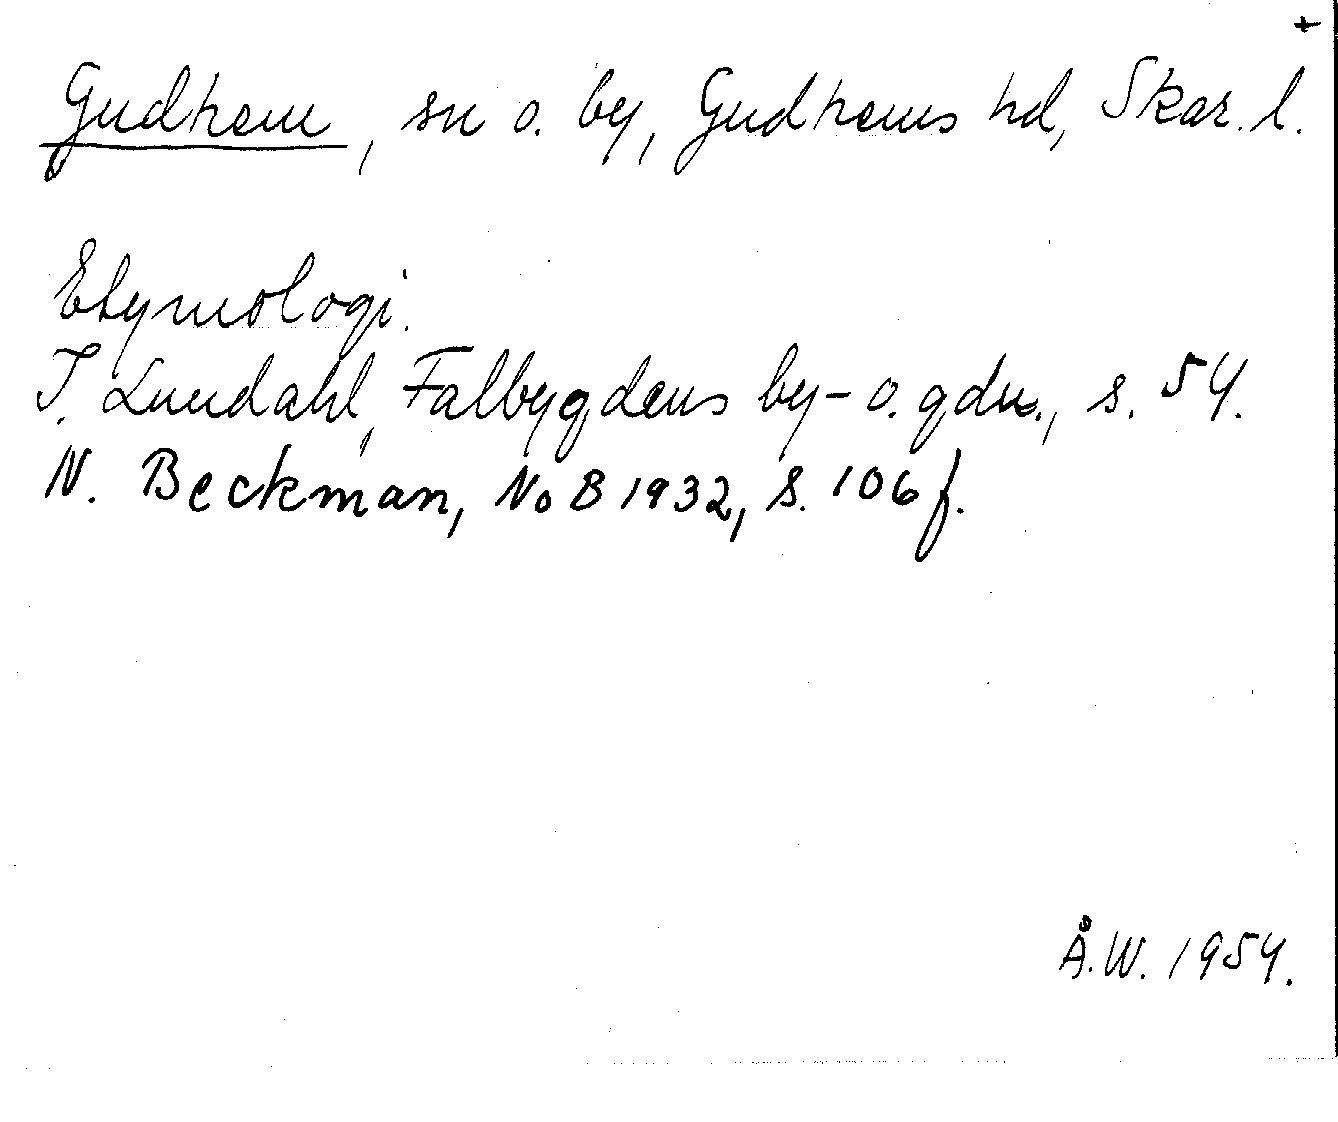 +
Gudhem, sn o. by, Gudhems hd, Skar. l.
Etymologi.
I. Lundahl, Falbygdens by- o. gdn., s. 54.
N. Beckman, NoB 1932, s. 106 f.
Å.W. 1954.